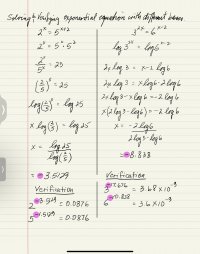 Solving & Verifying exponential equations with different bases.
2^x = 5^{x+2}
2^x = 5^x · 5^2
2^x / 5^x = 25
(2/5)^x = 25
log(2/5)^x = log 25
x log(2/5) = log 25
x = log 25 / log(2/5)
= -3.5129
Verification
2^{-3.5129} = 0.0876
5^{-1.5129} = 0.0876
3^{2x} = 6^{x-2}
log 3^{2x} = log 6^{x-2}
2x log 3 = x-2 log 6
2x log 3 = x log 6 - 2 log 6
2x log 3 - x log 6 = -2 log 6
x(2 log 3 - log 6) = -2 log 6
x = -2 log 6 / 2 log 3 - log 6
= -8.838
Verification